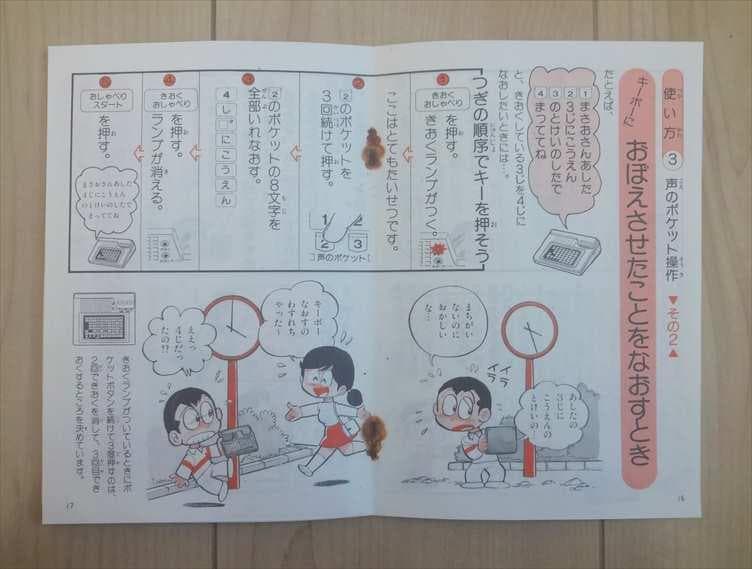 使い方 3 声のポケット操作 ▼その2▲
キーボーに
おぼえさせたことをなおすとき
たとえば、
1 まさおさんあした
2 3じにこうえん
3 のとけいのしたで
4 まっててね
と、きおくしている3じを4じに
なおしたいときには…。
つぎの順序でキーを押そう
きおく
おしゃべり
を押す。
きおくランプがつく。
ここはとてもたいせつです。
2 のポケットを
3回続けて押す。
1 2
2 3
声のポケット
3
2 のポケットの8文字を
全部いれなおす。
4 し ゛ に こ う え ん
4
きおく
おしゃべり
を押す。
ランプが消える。
5
おしゃべり
スタート
を押す。
まさおさんあした
4じにこうえん
のとけいのしたで
まっててね
まちがい
ないのに
おかしい
な…
イライラ
あしたの
3じに
こうえんの
とけいの…
16
キーボー
なおすの
わすれち
ゃった〜
ええっ
4じだっ
たの!?
きおくランプがついているときにポ
ケットボタンを続けて3度押すのは、
2回できおくを消して、3回目でき
おくするところを決めています。
17